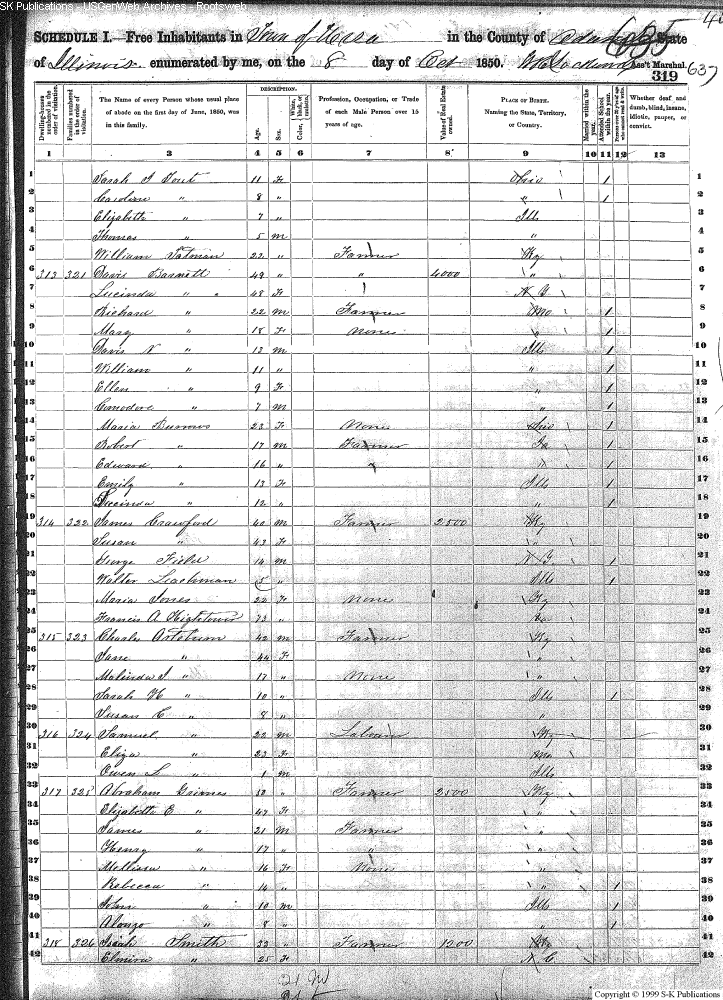 SK Publications - USGenWeb Archives - Rootsweb
SCHEDULE I.—Free Inhabitants in Town of Ursa in the County of Adams State
of Illinois enumerated by me, on the 8 day of Oct 1850. Ass't Marshal. 637
319
Dwelling-houses numbered in the order of visitation.
Families numbered in the order of visitation.
The Name of every Person whose usual place of abode on the first day of June, 1850, was in this family.
DESCRIPTION.
Age.
Sex.
White, black, or mulatto.
Color,
Profession, Occupation, or Trade of each Male Person over 15 years of age.
Value of Real Estate owned.
PLACE OF BIRTH. Naming the State, Territory, or Country.
Married within the year.
Attended School within the year.
Whether deaf and dumb, blind, insane, idiotic, pauper, or convict.
1 2 3 4 5 6 7 8 9 10 11 12 13
1 Sarah J 11 F Ohio 1 1
2 Caroline " 8 " " 1 2
3 Elizabeth " 7 " Ills 3
4 Thomas " 5 m " 4
5 William Tatman 22 " Farmer Ky 5
6 313 321 Davis Barnett 49 " " 4000 " 6
7 Lucinda " 48 F 7
8 Richard " 22 m Farmer Mo 1 8
9 Mary " 18 F None " 1 9
10 Davis N " 13 m Ills 1 10
11 William " 11 " " 1 11
12 Ellen " 9 F " 1 12
13 Comodore " 7 m " 1 13
14 Maria Burrows 23 F None Ohio 1 14
15 Robert " 17 m Farmer Ia 1 15
16 Edward " 16 " " " 1 16
17 Emily " 13 F Ills 1 17
18 Lucinda " 12 " " 1 18
19 314 322 James Crawford 40 m Farmer 2500 Ky 19
20 Susan " 43 F " 20
21 George Field 14 m 1 21
22 Walter Leachman 5 " Ills 1 22
23 Maria Jones 22 F None Ky 23
24 Francis A Hightower 73 " 24
25 315 323 Charles Artebum 42 m Farmer Ky 25
26 Jane " 44 F " 26
27 Malinda J " 17 " None " 27
28 Sarah H " 10 " Ills 1 28
29 Susan C " 8 " " 29
30 316 324 Samuel " 22 m Laborer Ky 30
31 Eliza " 23 F Mo 31
32 Owen L " 1 m Ills 32
33 317 325 Abraham Grimes Farmer 2500 Ky 33
34 Elizabeth E " 47 F " 34
35 James " 21 m Farmer " 35
36 Henry " 17 " " " 36
37 Mellissa " 16 F None " 37
38 Rebecca " 14 " " 1 38
39 John " 10 m Ills 1 39
40 Alonzo " 8 " " 1 40
41 318 326 Smith 33 " Farmer 1200 Ky 41
42 Elmira " 25 F N C 42
Copyright © 1999 S-K Publications